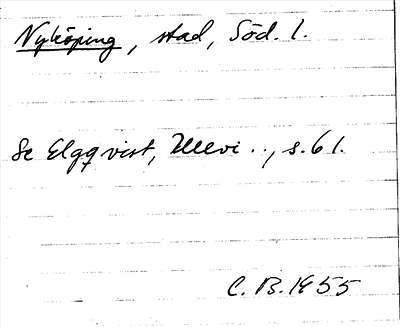 Nyköping, stad, Söd. l.
Se Elgqvist, Ullevi .., s. 61.
C. B. 1955